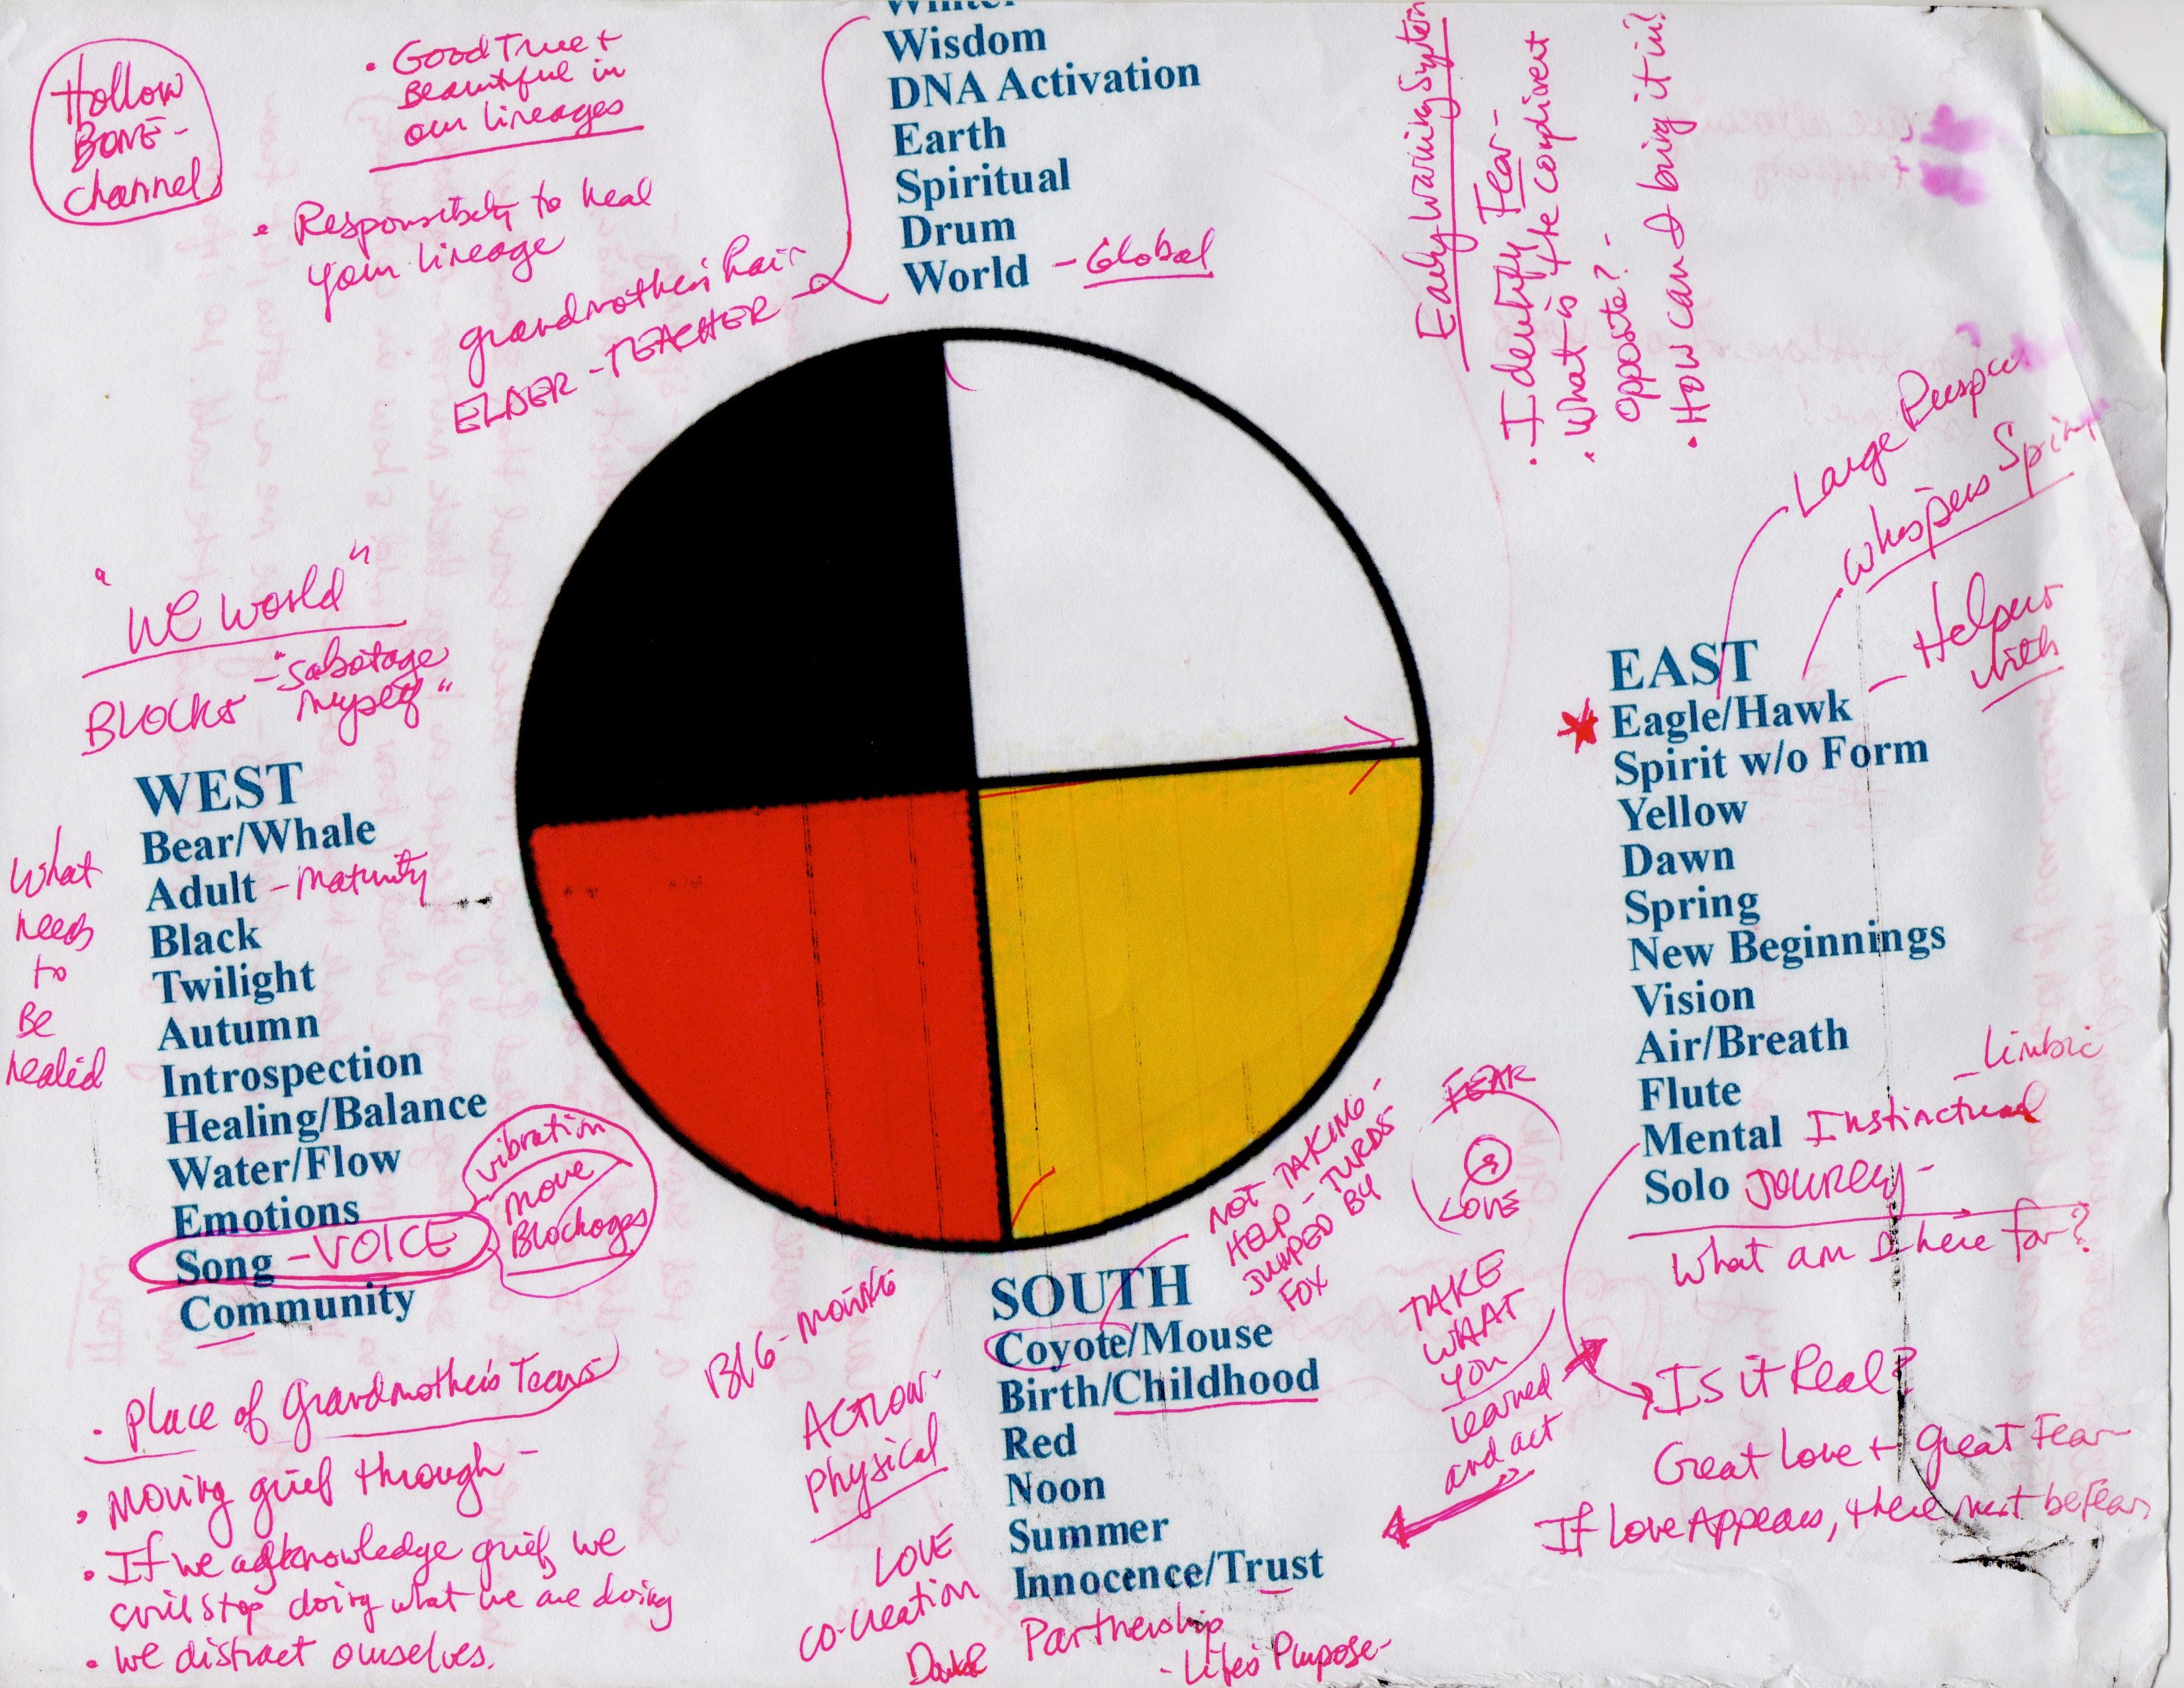 Winter
Wisdom
DNA Activation
Earth
Spiritual
Drum
World - Global
Hollow
BONE -
channel
• Good True +
Beautiful in
our lineages
• Responsibility to heal
your lineage
grandmother's hair
ELDER - TEACHER -
Early Warning System
• Identify Fear -
• What is the compliment
opposite? -
• How can I bring it in?
Large
Whispers
- Helpers
with
EAST
Eagle/Hawk
Spirit w/o Form
Yellow
Dawn
Spring
New Beginnings
Vision
Air/Breath
Flute
- limbic
Mental Instinctual
Solo JOURNEY -
What am I here for?
Is it Real?
Great Love + Great Fear -
If Love Appears, there must be fear
"WE World"
BLOCKS - "sabotage
myself"
WEST
Bear/Whale
Adult - maturity
Black
Twilight
Autumn
Introspection
Healing/Balance
Water/Flow
Emotions
Song - VOICE
Community
What
needs
to
Be
healed
vibration
move
Blockages
• Place of Grandmother's Tears
• Moving grief through -
• If we acknowledge grief, we
will stop doing what we are doing
• We distract ourselves.
FEAR
LOVE
NOT TAKING -
HELP - TURDS
JUMPED BY
FOX
TAKE
WHAT
YOU
learned
and act
SOUTH
Coyote/Mouse
Birth/Childhood
Red
Noon
Summer
Innocence/Trust
BIG -
ACTION -
Physical
LOVE
co-creation
Partnership
- Life's Purpose -